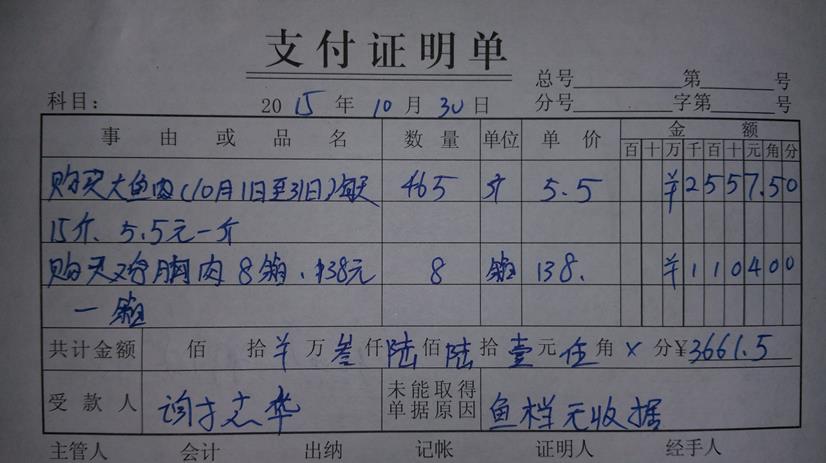 支付证明单
总号 第 号
科目： 2015年10月30日 分号 字第 号
事由或品名 数量 单位 单价 金额
百十万千百十元角分
购买大鱼肉(10月1日至31日)每天 465 斤 5.5 ¥2557.50
15斤、5.5元一斤
购买鸡胸肉8箱、138元 8 箱 138. ¥110400
一箱
共计金额 佰 拾¥万叁仟陆佰陆拾壹元伍角×分¥3661.5
受款人 志华 未能取得单据原因 鱼档无收据
主管人 会计 出纳 记帐 证明人 经手人